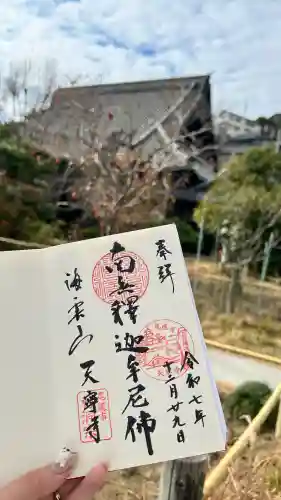 奉拝
南無釋迦牟尼佛
海雲山
天寧寺
令和七年
十二月廿九日